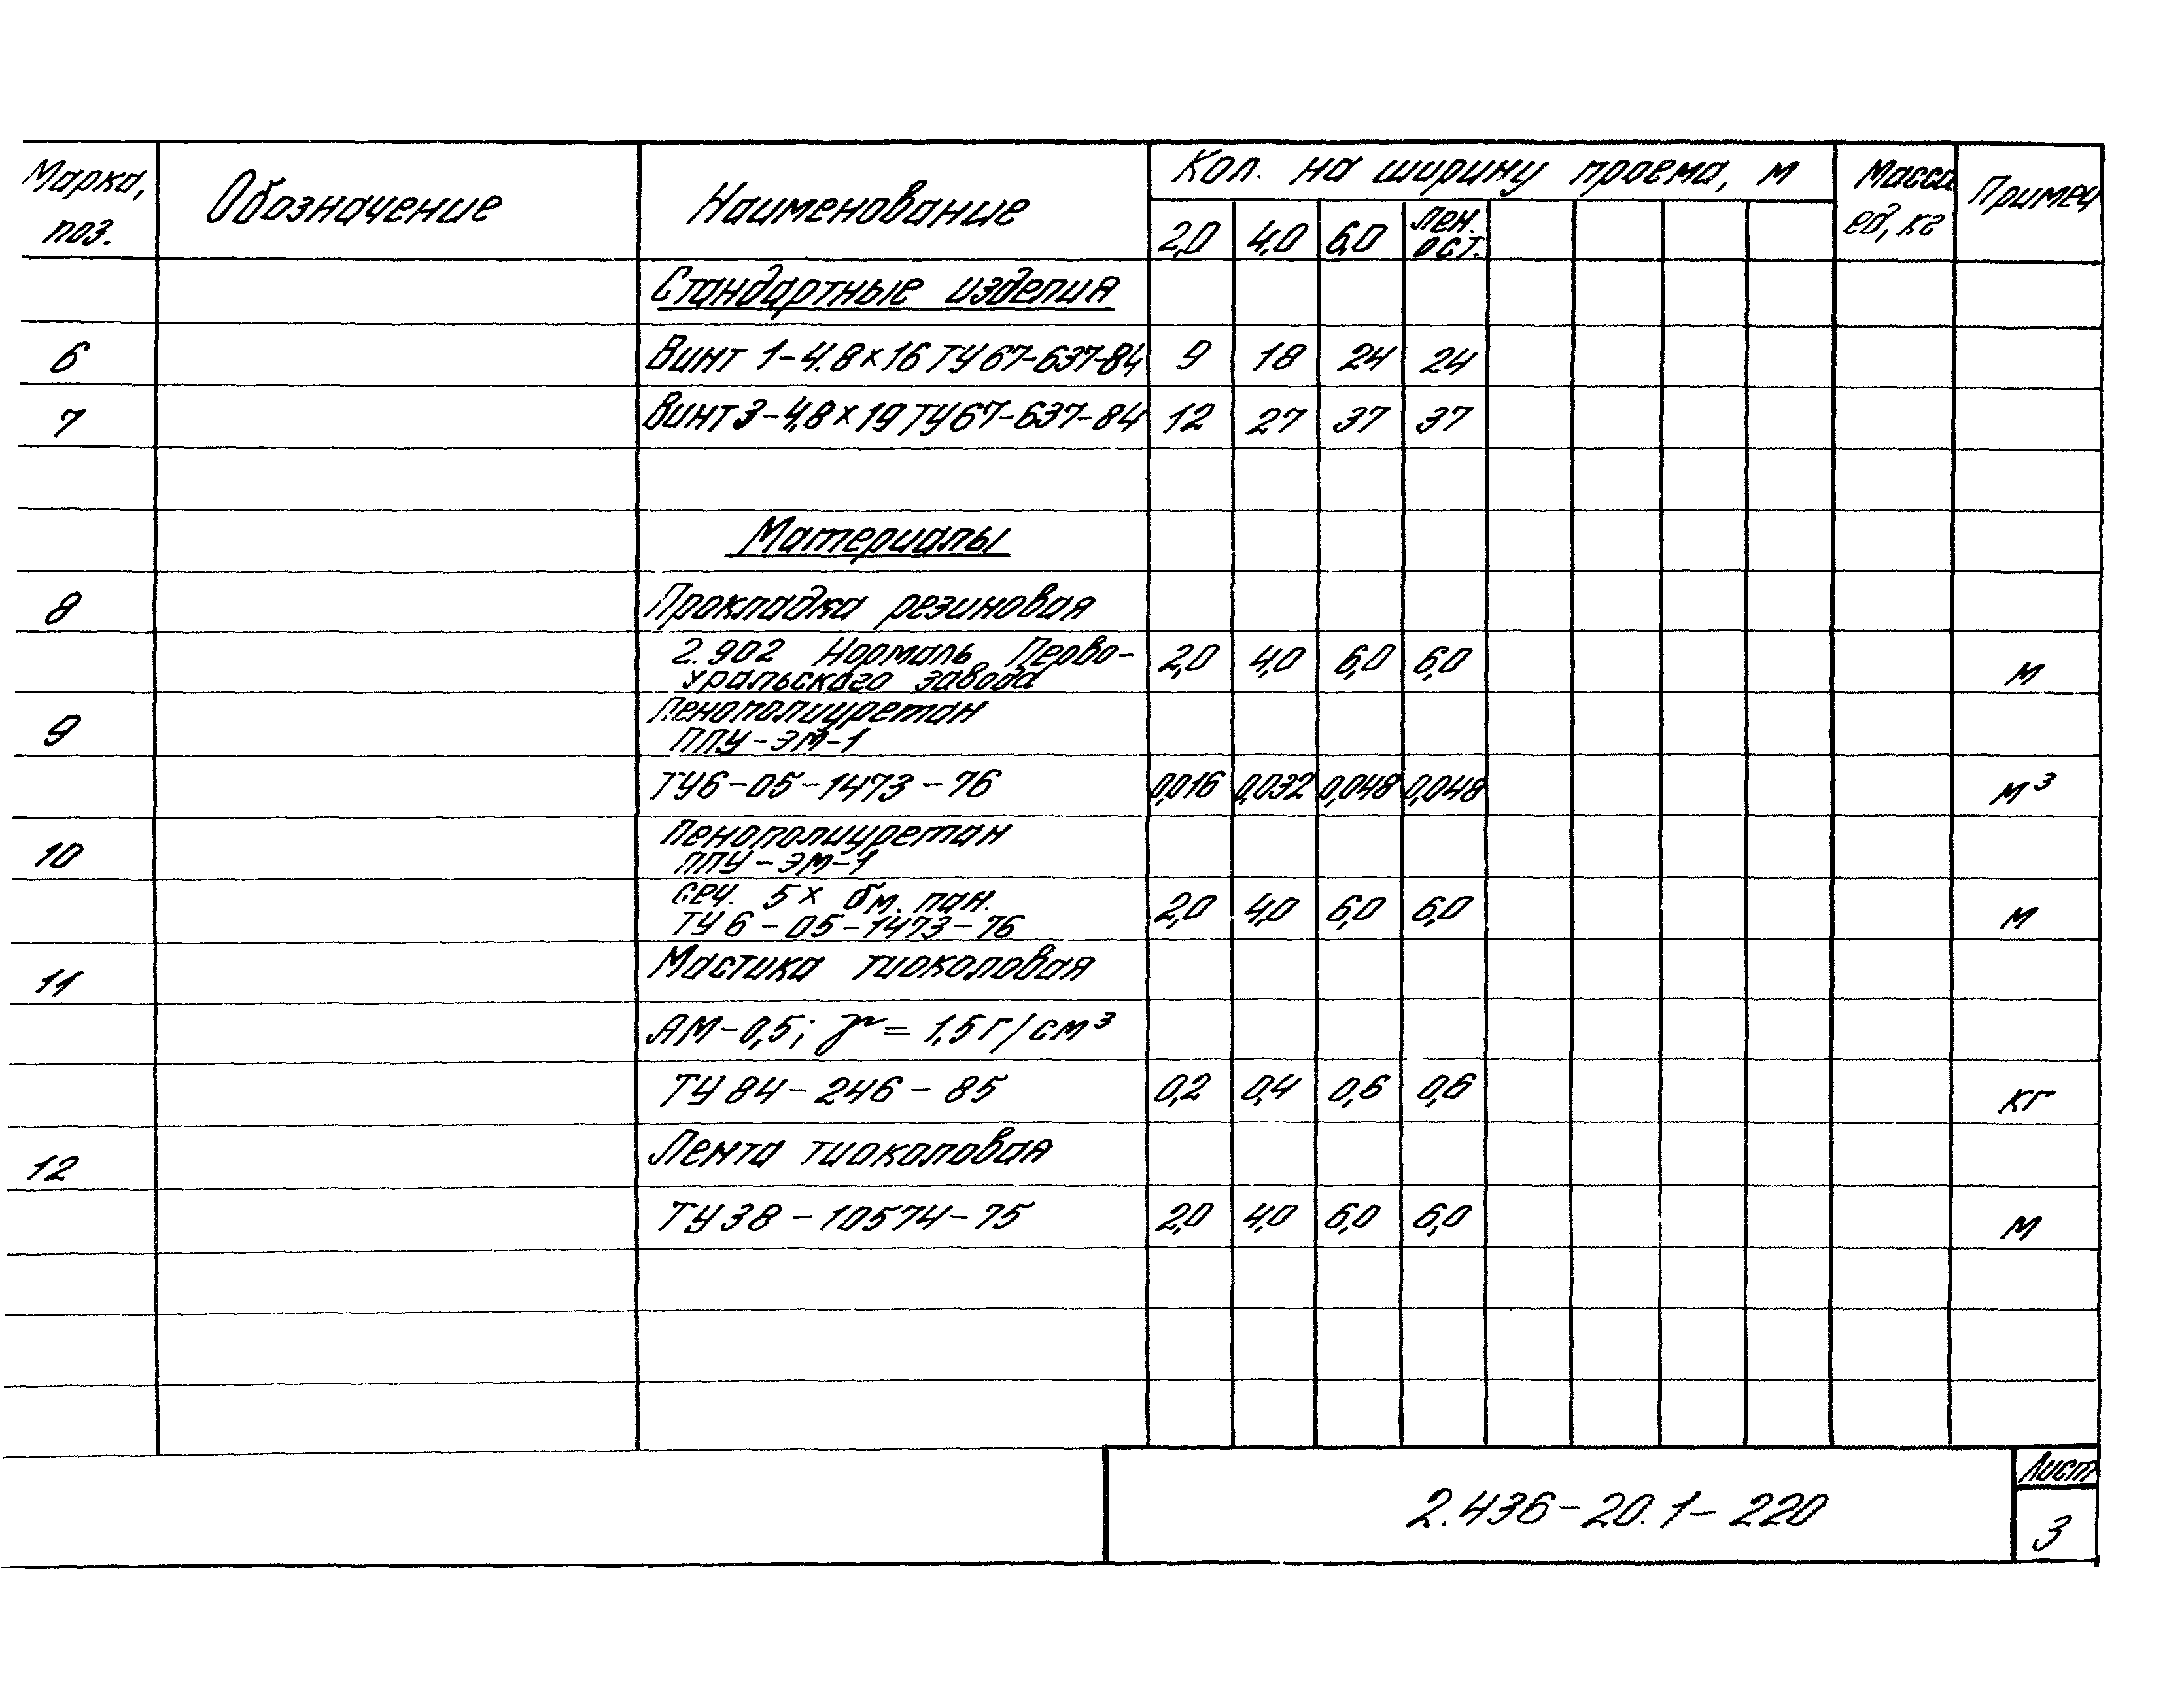 Марка, поз. Обозначение Наименование Кол. на ширину проема, м Масса ед, кг Примеч
2,0 4,0 6,0 лен. ост.
Стандартные изделия
6 Винт 1-4.8×16 ТУ67-637-84 9 18 24 24
7 Винт 3-4,8×19 ТУ67-637-84 12 27 37 37
Материалы
8 Прокладка резиновая
2.902 Нормаль Перво- 2,0 4,0 6,0 6,0 м
уральского завода
9 Пенополиуретан
ППУ-ЭМ-1
ТУ6-05-1473-76 0,016 0,032 0,048 0,048 м³
10 Пенополиуретан
ППУ-ЭМ-1
сеч. 5× бм. пан. 2,0 4,0 6,0 6,0 м
ТУ6-05-1473-76
11 Мастика тиоколовая
АМ-0,5; γ = 1,5 г/см³
ТУ84-246-85 0,2 0,4 0,6 0,6 кг
12 Лента тиоколовая
ТУ38-10574-75 2,0 4,0 6,0 6,0 м
2.436-20.1-220
Лист
3